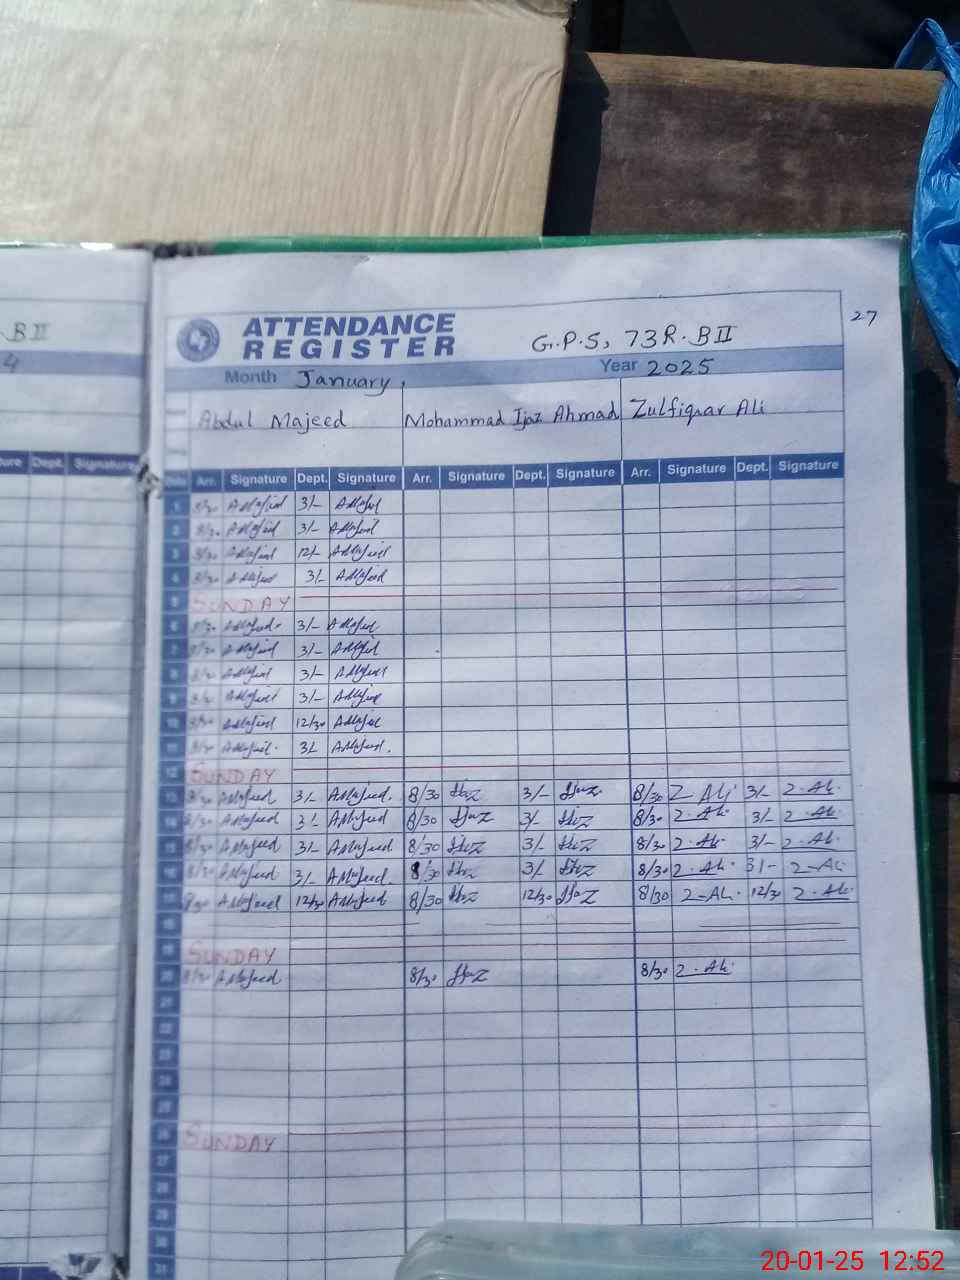 B II
4
ATTENDANCE
REGISTER
G.P.S, 73R.BII
27
Month January, Year 2025
Abdul Majeed Mohammad Ijaz Ahmad Zulfiqar Ali
Dept. Signature
Date Arr. Signature Dept. Signature Arr. Signature Dept. Signature Arr. Signature Dept. Signature
1 8/30 AMajeed 3/- AMajeed
2 8/30 AMajeed 3/- AMajeed
3 8/30 AMajeed 12/- AMajeed
4 8/30 AMajeed 3/- AMajeed
5 SUNDAY
6 8/30 AMajeed 3/- AMajeed
7 8/30 AMajeed 3/- AMajeed
8 8/30 AMajeed 3/- AMajeed
9 8/30 AMajeed 3/- AMajeed
10 8/30 AMajeed 12/30 AMajeed
11 8/30 AMajeed 3/- AMajeed.
12 SUNDAY
13 8/30 AMajeed 3/- AMajeed. 8/30 Ijaz 3/- Ijaz 8/30 Z-Ali 3/- Z-Ali
14 8/30 AMajeed 3/- AMajeed 8/30 Ijaz 3/- Ijaz 8/30 Z-Ali 3/- Z-Ali
15 8/30 AMajeed 3/- AMajeed 8/30 Ijaz 3/- Ijaz 8/30 Z-Ali 3/- Z-Ali
16 8/30 AMajeed 3/- AMajeed. 8/30 Ijaz 3/- Ijaz 8/30 Z-Ali 3/- Z-Ali
17 8/30 AMajeed 12/30 AMajeed 8/30 Ijaz 12/30 Ijaz 8/30 Z-Ali 12/30 Z-Ali
18
19 SUNDAY
20 8/30 AMajeed 8/30 Ijaz 8/30 Z-Ali
21
22
23
24
25
26 SUNDAY
27
28
29
30
31
20-01-25 12:52